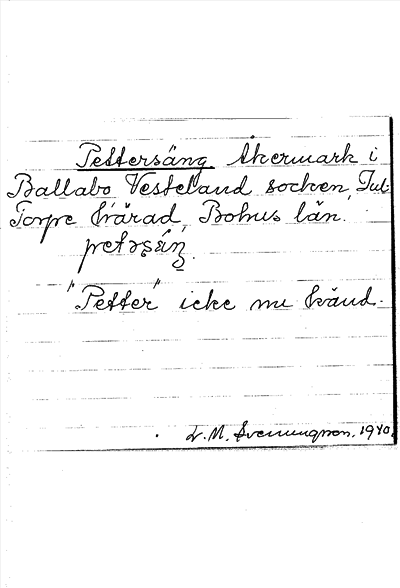 Pettersäng Åkermark i
Ballabo Vesteland socken, Jul-
Torpe härad, Bohus län.
"Petter" icke nu känd.
L. M. Svenungsson, 1940.